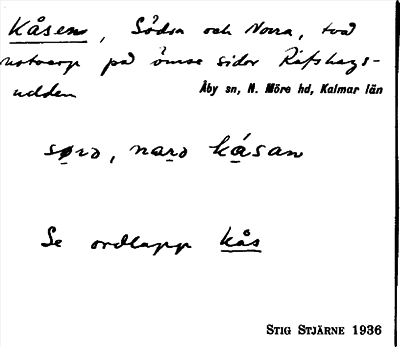 Kåsen, Södra och Norra, två
notvarp på ömse sidor Räfshags-
udden
Åby sn, N. Möre hd, Kalmar län
sørə, narə kåsan
Se ordlapp kås
STIG STJÄRNE 1936